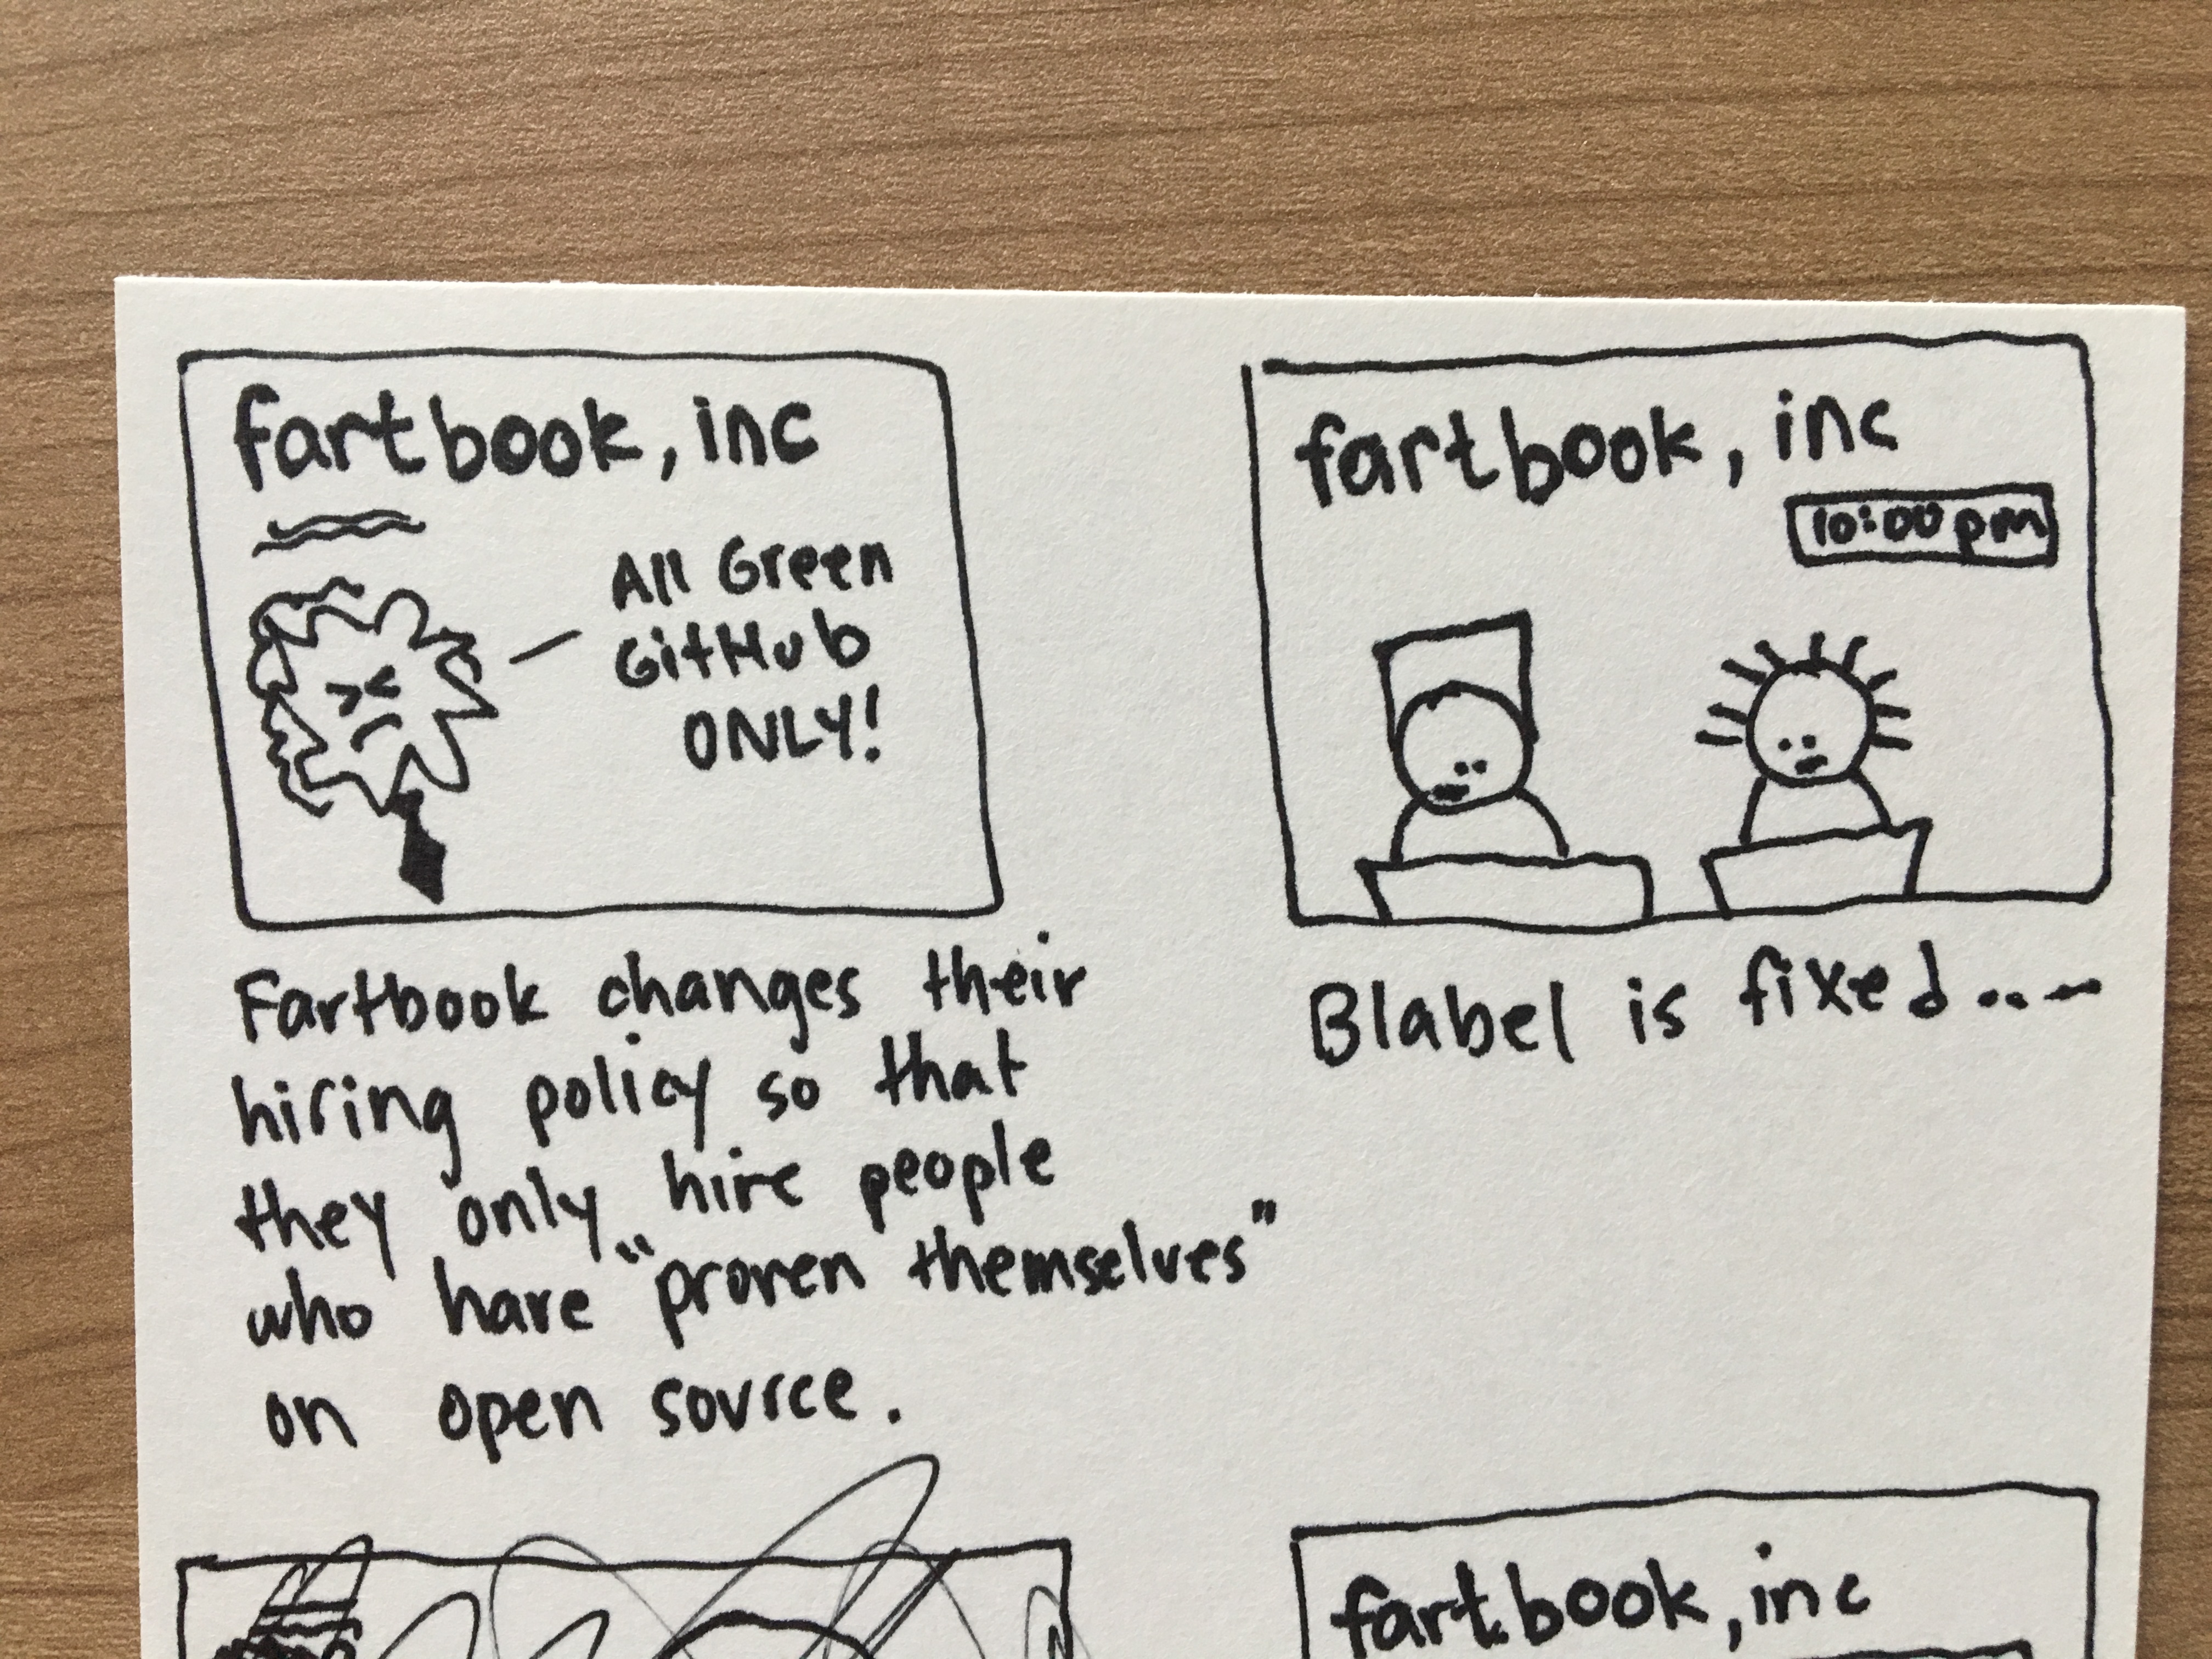 fartbook, inc
All Green
GitHub
ONLY!
Fartbook changes their
hiring policy so that
they only hire people
who have "proven themselves"
on open source.
fartbook, inc
10:00 pm
Blabel is fixed...
fartbook, inc